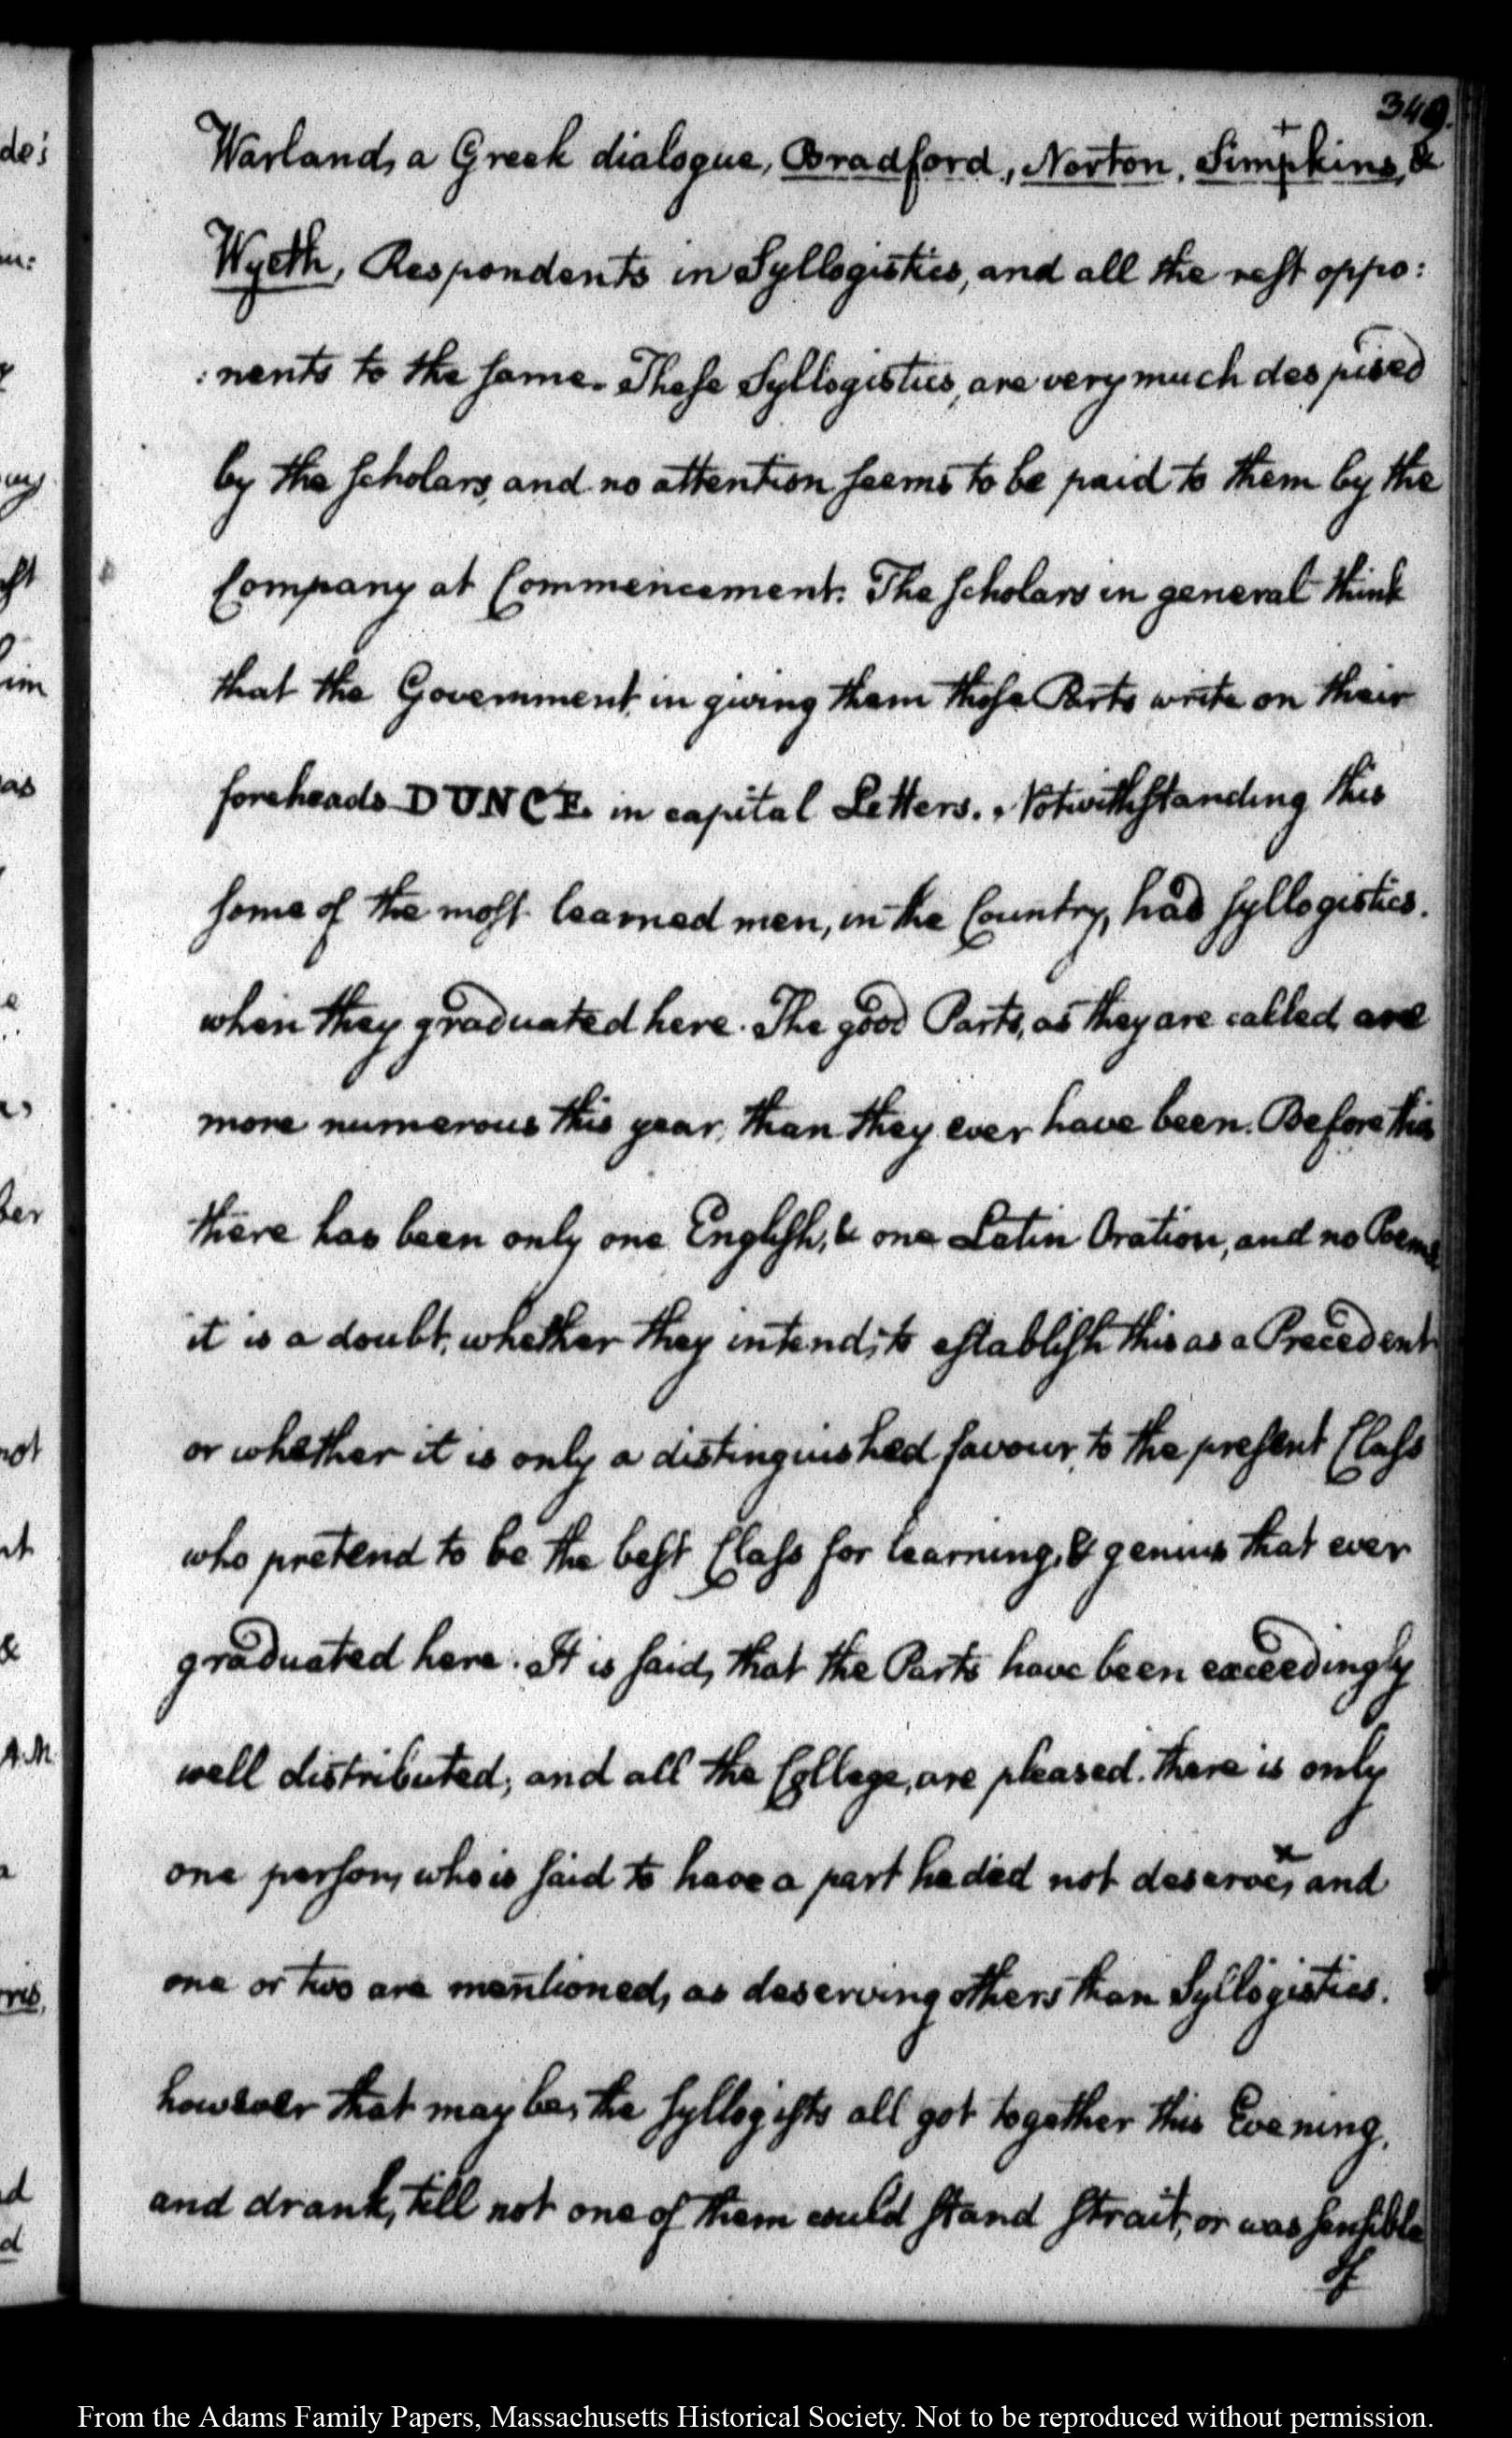 349.
Warland, a Greek dialogue, Bradford, Norton, Simpkins, &
Wyeth, Respondents in Syllogistics, and all the rest oppo:
:nents to the same. These Syllogistics, are very much despised
by the scholars, and no attention seems to be paid to them by the
Company at Commencement. The scholars in general think
that the Government, in giving them those Parts write on their
foreheads DUNCE in capital Letters. Notwithstanding this
some of the most learned men, in the Country, had syllogistics.
when they graduated here. The good Parts, as they are called, are
more numerous this year, than they ever have been. Before this
there has been only one English, & one Latin Oration, and no Poems
it is a doubt, whether they intend, to establish this as a Precedent
or whether it is only a distinguished favour, to the present Class
who pretend to be the best Class for learning, & genius that ever
graduated here. It is said, that the Parts have been exceedingly
well distributed, and all the College, are pleased. there is only
one person, who is said to have a part he did not deserve, and
one or two are mentioned, as deserving others than Syllogistics.
however that may be, the syllogists all got together this Evening,
and drank, till not one of them could stand strait, or was sensible
of
From the Adams Family Papers, Massachusetts Historical Society. Not to be reproduced without permission.